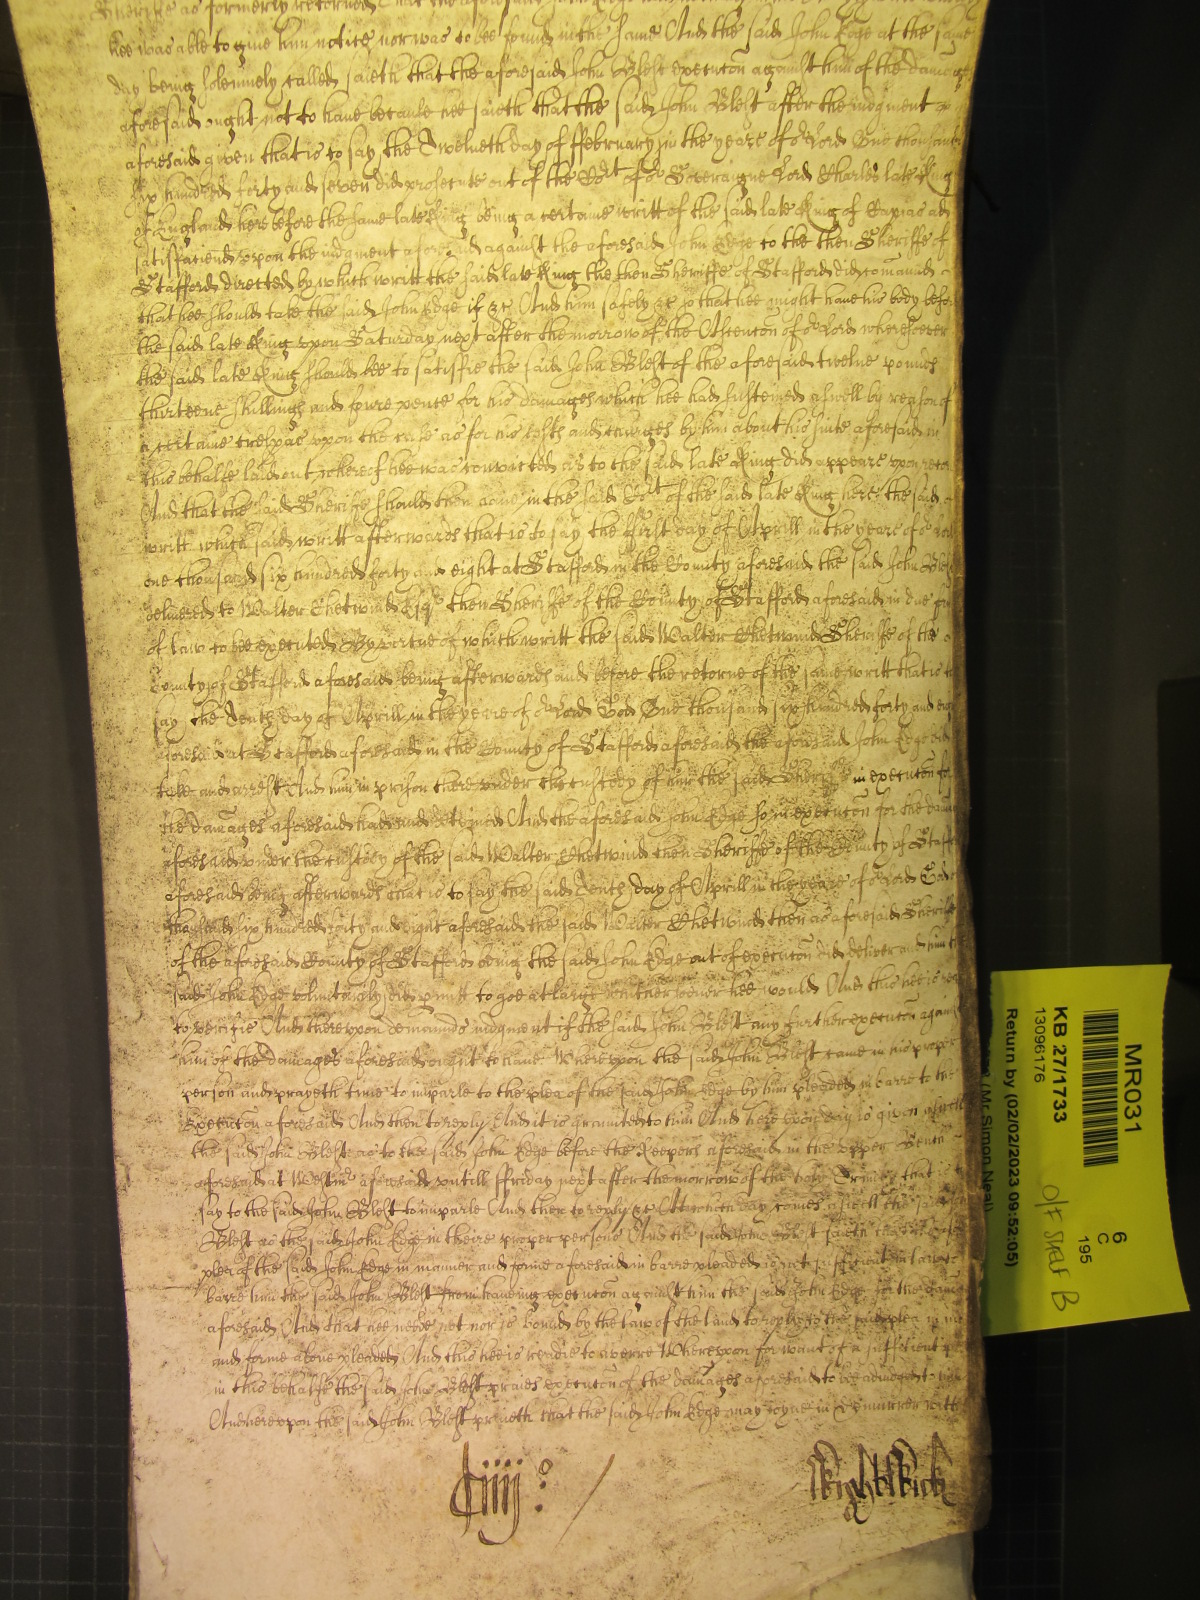 Sheriffe as formerly retorned
hee was able to give him notice nor was to bee found in the same And the said John Edge at the same
day being solemnely called saieth that the aforesaid John Blest execucon against him of the damages
aforesaid ought not to have because hee saieth that the said John Blest after the iudgment
aforesaid given that is to say the Twelueth day of ffebruary in the yeare of or Lord One thousand
six hundred forty and seven did prosecute out of the Cort of or Soveraigne Lord Charles late King
of England here before the same late King being a certaine writt of the said late King of Capias ad
satisfaciend upon the iudgment aforesaid against the aforesaid John Edge to the then Sheriffe of
Stafford directed by which writt the said late King the then Sheriffe of Stafford did comaund
that hee should take the said John Edge if &c And him safely &c so that hee might have his body before
the said late King upon Saturday next after the morrow of the Ascencon of or Lord wheresoever
the said late King should bee to satisfie the said John Blest of the aforesaid twelue pounds
thirteene shillings and foure pence for his damages which hee had susteined aswell by reason of
a certaine trespas upon the case as for his costs and charges by him about his suite aforesaid in
this behalfe laid out whereof hee was convicted as to the said late King did appeare upon record
And that the said Sheriffe should then have in the said Cort of the said late King here the said
writt which said writt afterwards that is to say the first day of Aprill in the yeare of or Lord
one thousand six hundred forty and eight at Stafford in the County aforesaid the said John Blest
delivered to Walter Chetwind Esqr then Sheriffe of the County of Stafford aforesaid in due forme
of law to bee executed By virtue of which writt the said Walter Chetwind Sheriffe of the
County of Stafford aforesaid being afterwards and before the retorne of the same writt that is to
say the Tenth day of Aprill in the yeare of or Lord God One thousand six hundred forty and eight
aforesaid at Stafford aforesaid in the County of Stafford aforesaid the aforesaid John Edge did
take and arrest And him in prison there under the custody of him the said Sheriffe in execucon for
the damages aforesaid had and deteined And the aforesaid John Edge so in execucon for the damages
aforesaid under the custody of the said Walter Chetwind then Sheriffe of the County of Stafford
aforesaid being afterwards that is to say the said Tenth day of Aprill in the yeare of or Lord God
thousand six hundred forty and eight aforesaid the said Walter Chetwind then as aforesaid Sheriffe
of the aforesaid County of Stafford being the said John Edge out of execucon did deliver and him the
said John Edge voluntaryly did permitt to goe at large whither soever hee would And this hee is ready
to verifie And thereupon demaunds iudgment if the said John Blest any further execucon against
him of the damages aforesaid ought to have Whereupon the said John Blest came in his proper
person and prayeth time to imparle to the plea of the said John Edge by him pleaded in barre to the
execucon aforesaid And then to reply And it is graunted to him And hereupon day is given aswell
the said John Blest as to the said John Edge before the Keepers aforesaid in the upper Bench
aforesaid at Westmr aforesaid untill ffriday next after the morrow of the holy Trinity that is to
say to the said John Blest to imparle And then to reply &c At which day comes aswell the said John
Blest as the said John Edge in theire proper persons And the said John Blest saieth that the
plea of the said John Edge in manner and forme aforesaid in barre pleaded is not sufficient in law to
barre him the said John Blest from haveing execucon against him the said John Edge for the damages
aforesaid And that hee neede not nor is bound by the law of the land to reply to the said plea in manner
and forme above pleaded And this hee is readie to averre Whereupon for want of a sufficient
in this behalfe the said John Blest praies execucon of the damages aforesaid to bee adiudged to him
And hereupon the said John Blest prayeth that the said John Edge may ioyne in Demurrer with
MR031
KB 27/1733
13096176
Return by (02/02/2023 09:52:05)
(Mr Simon Neal)
6
C
195
O/F Shelf B